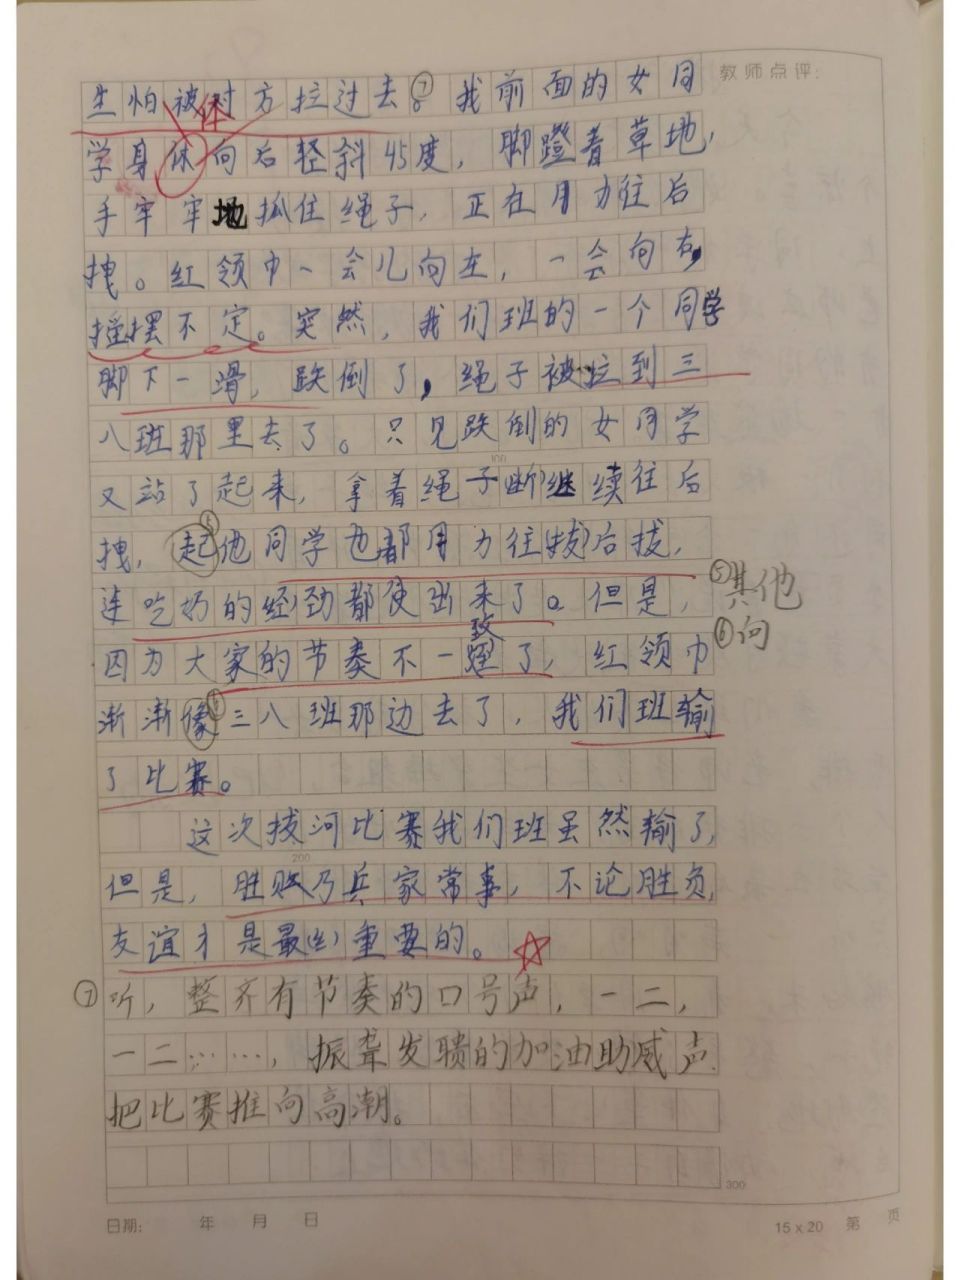 教师点评:
生怕被对方拉过去。⑦我前面的女同
体
学身休向后轻斜45度，脚蹬着草地，
手牢牢地抓住绳子，正在用力往后
拽。红领巾一会儿向左，一会向右，
摇摆不定。突然，我们班的一个同学
脚下一滑，跌倒了，绳子被拉到三
八班那里去了。只见跌倒的女同学
100
又站了起来，拿着绳子断继续往后
拽，起他同学也都用力往拔后拔，
⑤其他
连吃奶的经劲都使出来了。但是，
⑥向
致
因为大家的节奏不一了，红领巾
渐渐像三八班那边去了，我们班输
了比赛。
这次拔河比赛我们班虽然输了，
200
但是，胜败乃兵家常事，不论胜负，
友谊才是最重要的。
⑦听，整齐有节奏的口号声，一二，
一二……，振聋发聩的加油助威声
把比赛推向高潮。
300
日期: 年 月 日 15x20 第 页